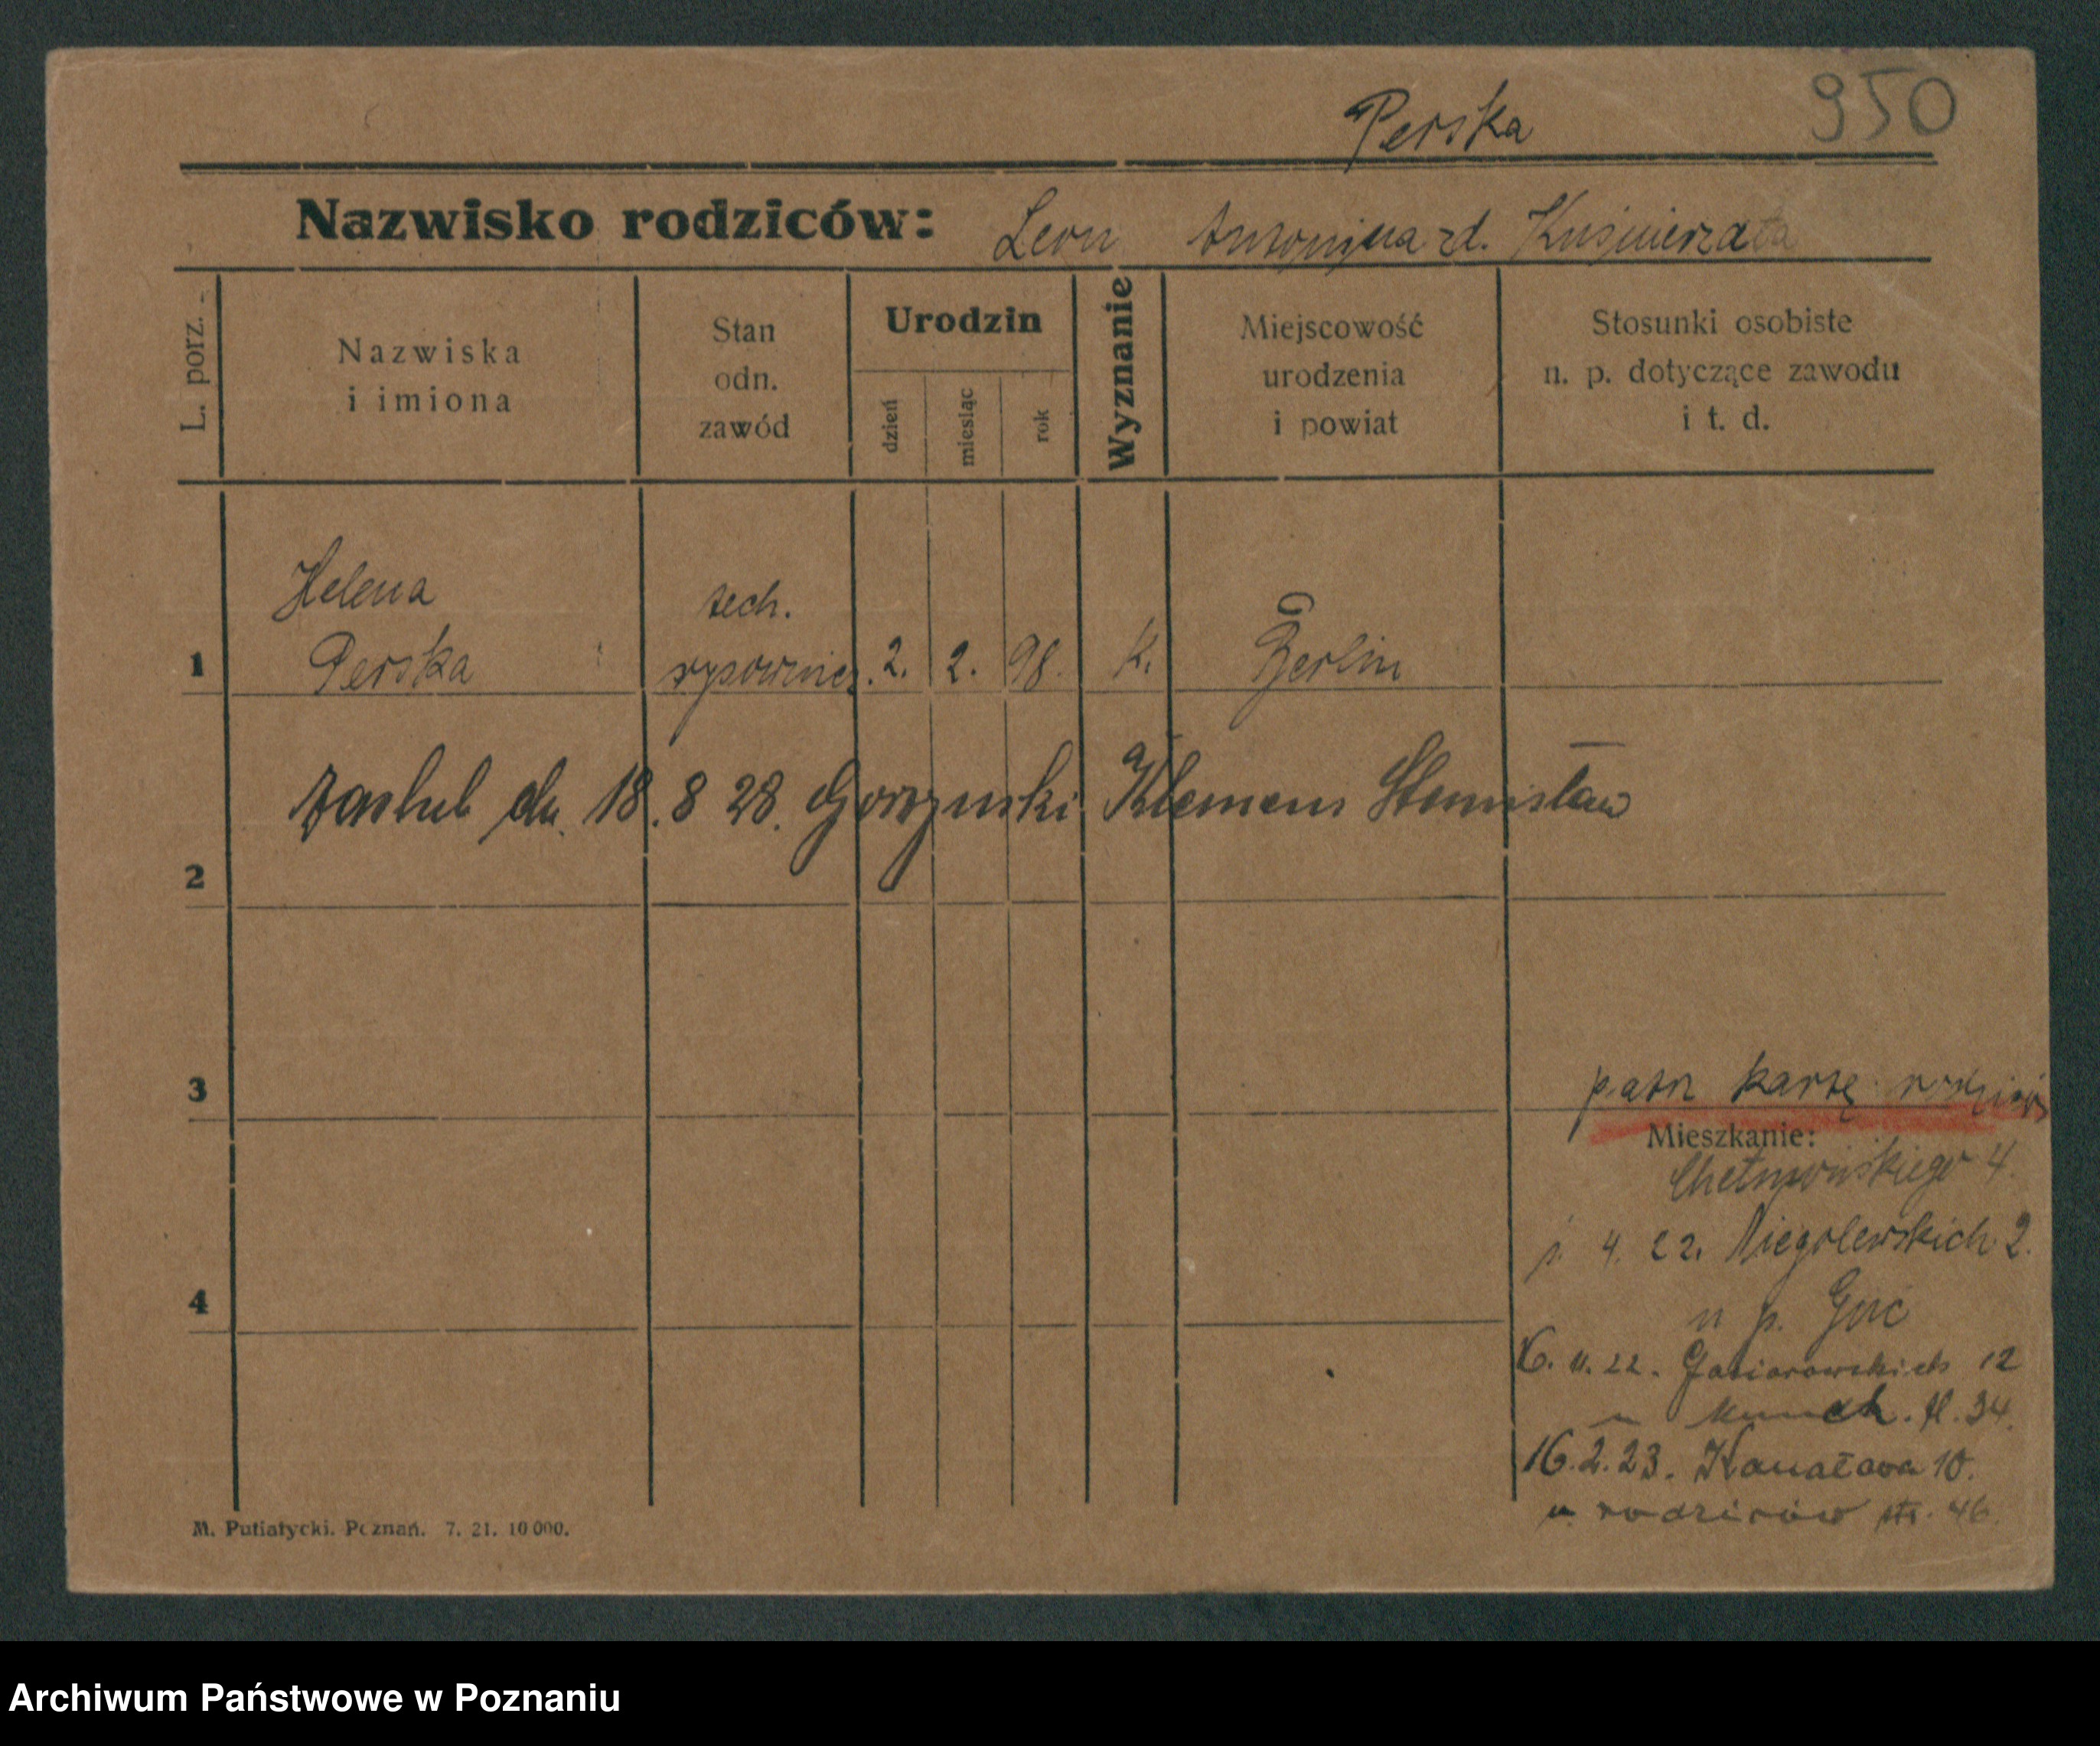 950
Perska
Nazwisko rodziców: Leon Antonina zd. Kuśmierzata
L. porz.
Nazwiska i imiona
Stan odn. zawód
Urodzin
dzień
miesiąc
rok
Wyznanie
Miejscowość urodzenia i powiat
Stosunki osobiste n. p. dotyczące zawodu i t. d.
1
Helena
Perska
tech.
rysownicz.
2.
2.
98.
K.
Berlin
2
zaślub dn. 18.8 28. Gorzynski Klemens Stanisław
3
patrz kartę rodziców
Mieszkanie:
Chełmońskiego 4.
4. 22. Niegolewskich 2.
u p.
4
16. 11. 22. Gąsiorowskich 12
34.
16.2.23. Kanałowa 10.
u rodziców str. 46.
M. Putiatycki. Poznań. 7. 21. 10 000.
Archiwum Państwowe w Poznaniu